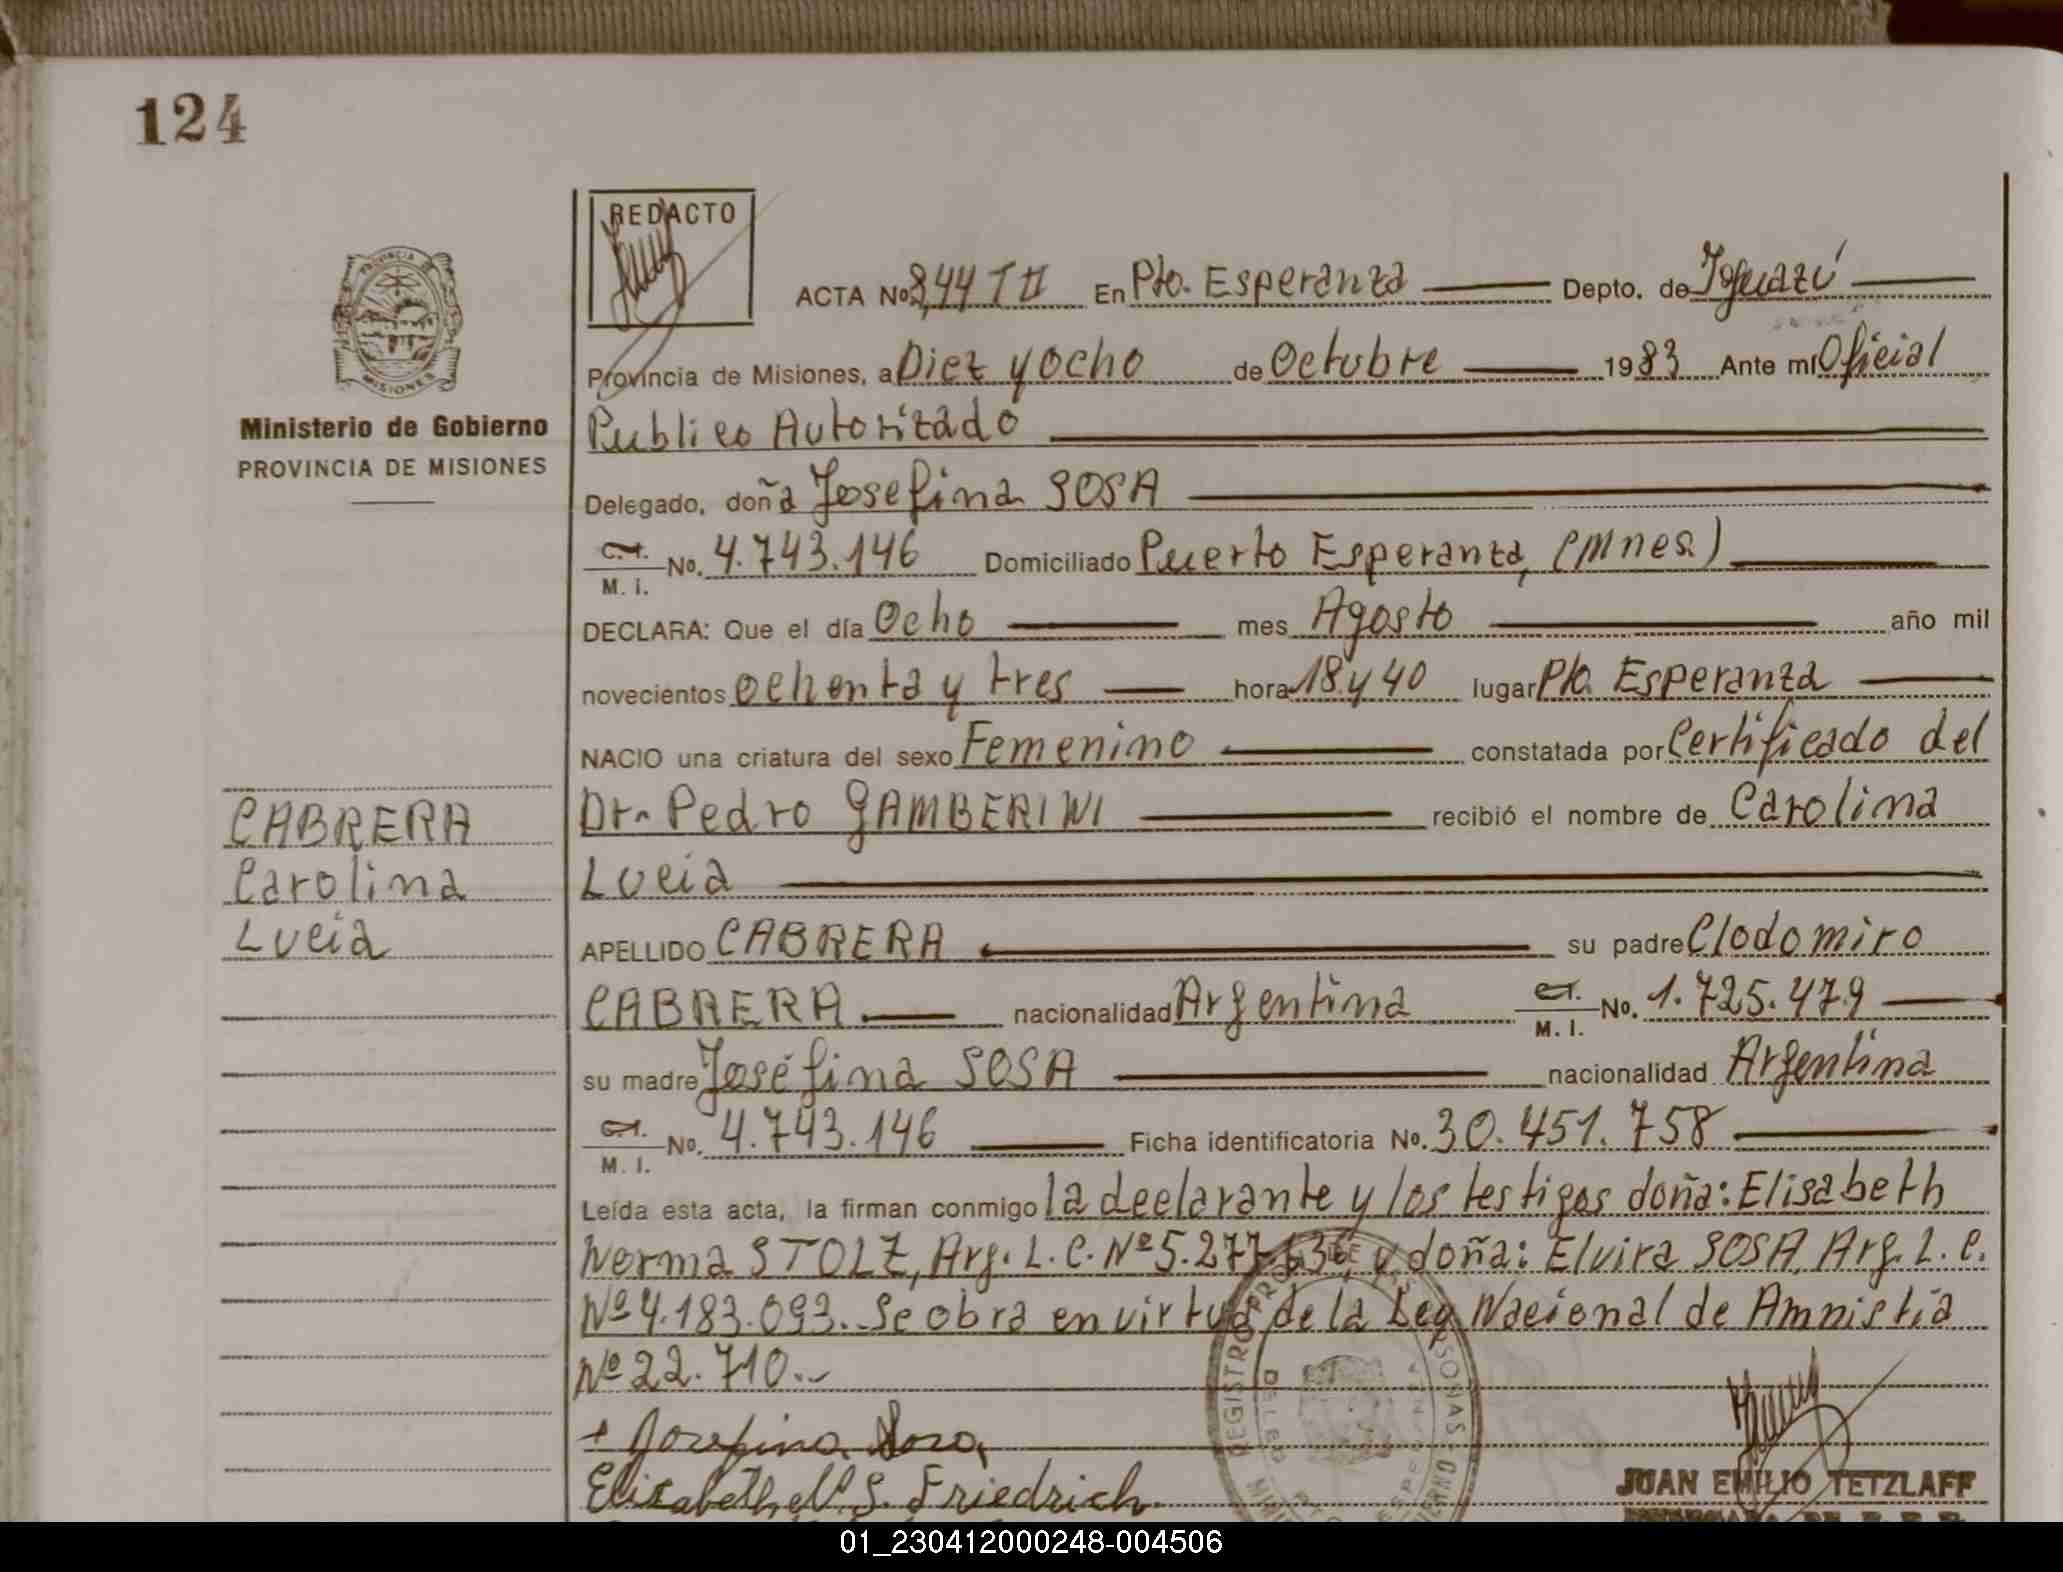 124
REDACTO
ACTA No. 844 TII En Pto. Esperanza Depto. de Iguazú
Provincia de Misiones, a Diez y ocho de Octubre 1983 Ante mí Oficial
Publico Autorizado
Delegado, doña Josefina SOSA
C.I. M. I. No. 4.743.146 Domiciliado Puerto Esperanza, (Mnes)
DECLARA: Que el día Ocho mes Agosto año mil
novecientos ochenta y tres hora 18 y 40 lugar Pto. Esperanza
NACIO una criatura del sexo Femenino constatada por Certificado del
Dr. Pedro GAMBERINI recibió el nombre de Carolina
Lucia
APELLIDO CABRERA su padre Clodomiro
CABRERA nacionalidad Argentina C.I. M. I. No. 1.725.479
su madre Joséfina SOSA nacionalidad Argentina
C.I. M. I. No. 4.743.146 Ficha identificatoria No. 30.451.758
Leída esta acta, la firman conmigo la declarante y los testigos doña: Elisabeth
Norma STOLZ, Arg. L. C. Nº 5.277.636, y doña: Elvira SOSA, Arg. L. C.
Nº 4.183.093. Se obra en virtud de la Ley Nacional de Amnistia
Nº 22.710.-
+ Josefina Sosa
Elisabeth N. S. Friedrich
JUAN EMILIO TETZLAFF
PROVINCIA DE
MISIONES
Ministerio de Gobierno
PROVINCIA DE MISIONES
CABRERA
Carolina
Lucia
01_230412000248-004506